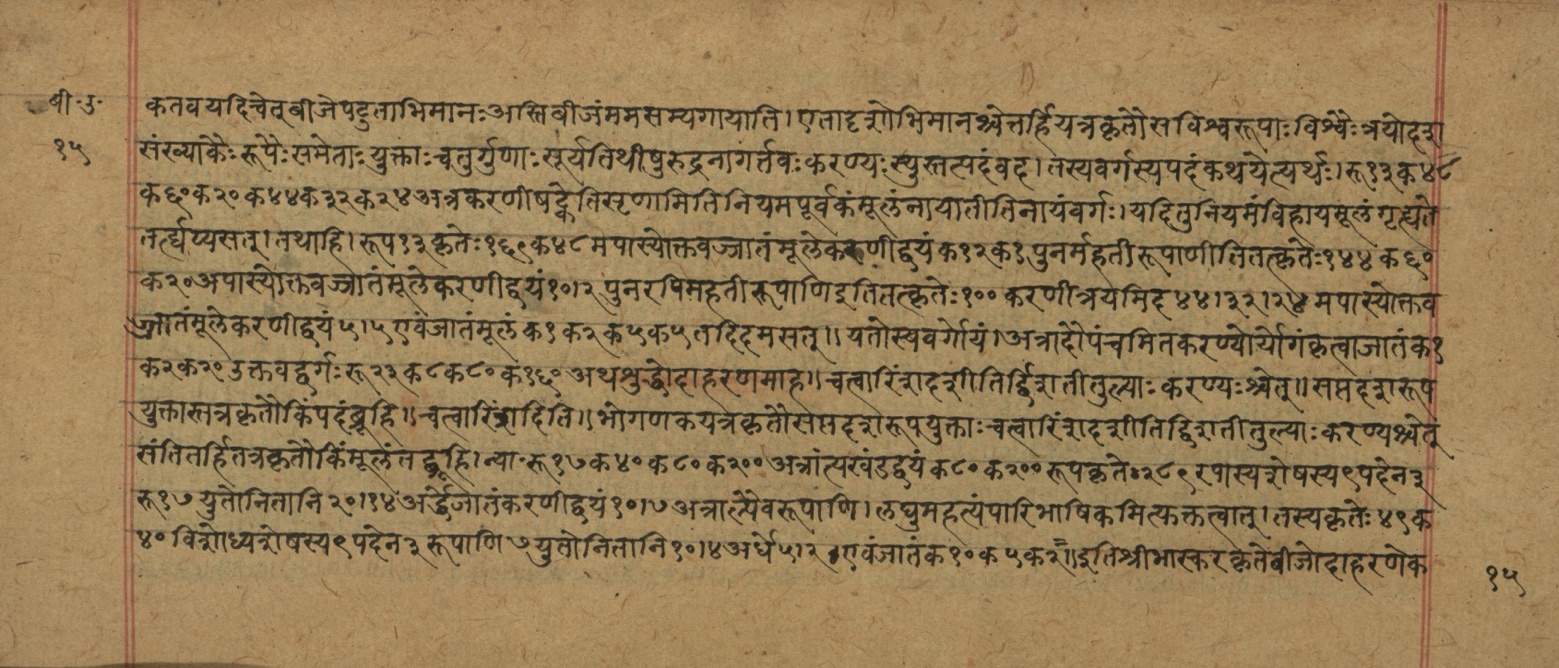 बी॰उ॰
१५
कतवयदिचेत्बीजेपटुताभिमानःअस्तिबीजंममसम्यगायाति।एतादृशोभिमानश्चेत्तर्हियत्रकृतौसविश्वरूपाःविश्वैःत्रयोदश
संख्याकैःरूपैःसमेताःयुक्ताःचतुर्गुणाःसूर्यतिथीषुरुद्रनागर्त्तवःकरण्यःस्युस्तत्पदंवद।तस्यवर्गस्यपदंकथयेत्यर्थः।रू१३क४८
क६०क२०क४४क३२क२४अत्रकरणीषट्केतिसृणामितिनियमपूर्वकंमूलंनायातीतिनायंवर्गः।यदितुनियमंविहायमूलंगृह्यते
तर्ह्यप्यसत्।तथाहि।रूप१३कृतेः१६९क४८मपास्योक्तवज्जातंमूलेकरणीद्वयंक१२क१पुनर्महतीरूपाणीतितत्कृतेः१४४क६०
क२०अपास्योक्तवज्जातंमूलेकरणीद्वयं१०।२पुनरपिमहतीरूपाणिइतितत्कृतेः१००करणीत्रयमिह४४।३२।२४मपास्योक्तव
ज्जातंमूलेकरणीद्वयं५।५एवंजातंमूलंक१क२क५क५तदिदमसत्॥यतोस्यवर्गोयं।अत्रादौपंचमितकरण्योर्योगंकृत्वाजातंक१
क२क२०उक्तवद्वर्गःरू२३क८क८०क१६०अथश्रुद्धोदाहरणमाह॥चत्वारिंशदशीतिर्द्विशतीतुल्याःकरण्यःश्चेत्॥सप्तदशरूप
युक्तास्तत्रकृतौकिंपदंब्रूहि॥चत्वारिंशदिति॥भोगणकयत्रकृतौसप्तदशरूपयुक्ताःचत्वारिंशदशीतिद्विशतीतुल्याःकरण्यश्चेत्
संतितर्हितत्रकृतौकिंमूलंतद्ब्रूहि।न्यासःरू१७क४०क८०क२००अत्रांत्यखंडद्वयंक८०क२००रूपकृतेः२८९रपास्यशेषस्य९पदेन३
रू१७युतोनितानि२०।१४अर्द्धेजातंकरणीद्वयं१०।७अत्राल्पैवरूपाणि।लघुमहत्यंपारिभाषिकमित्युक्तत्वात्।तस्यकृतेः४९क
४०विशोध्यशेषस्य९पदेन३रूपाणि७युतोनितानि१०।४अर्धे५।२एवंजातंक१०क५क२॥इतिश्रीभास्करकृतेबीजोदाहरणेक
१५